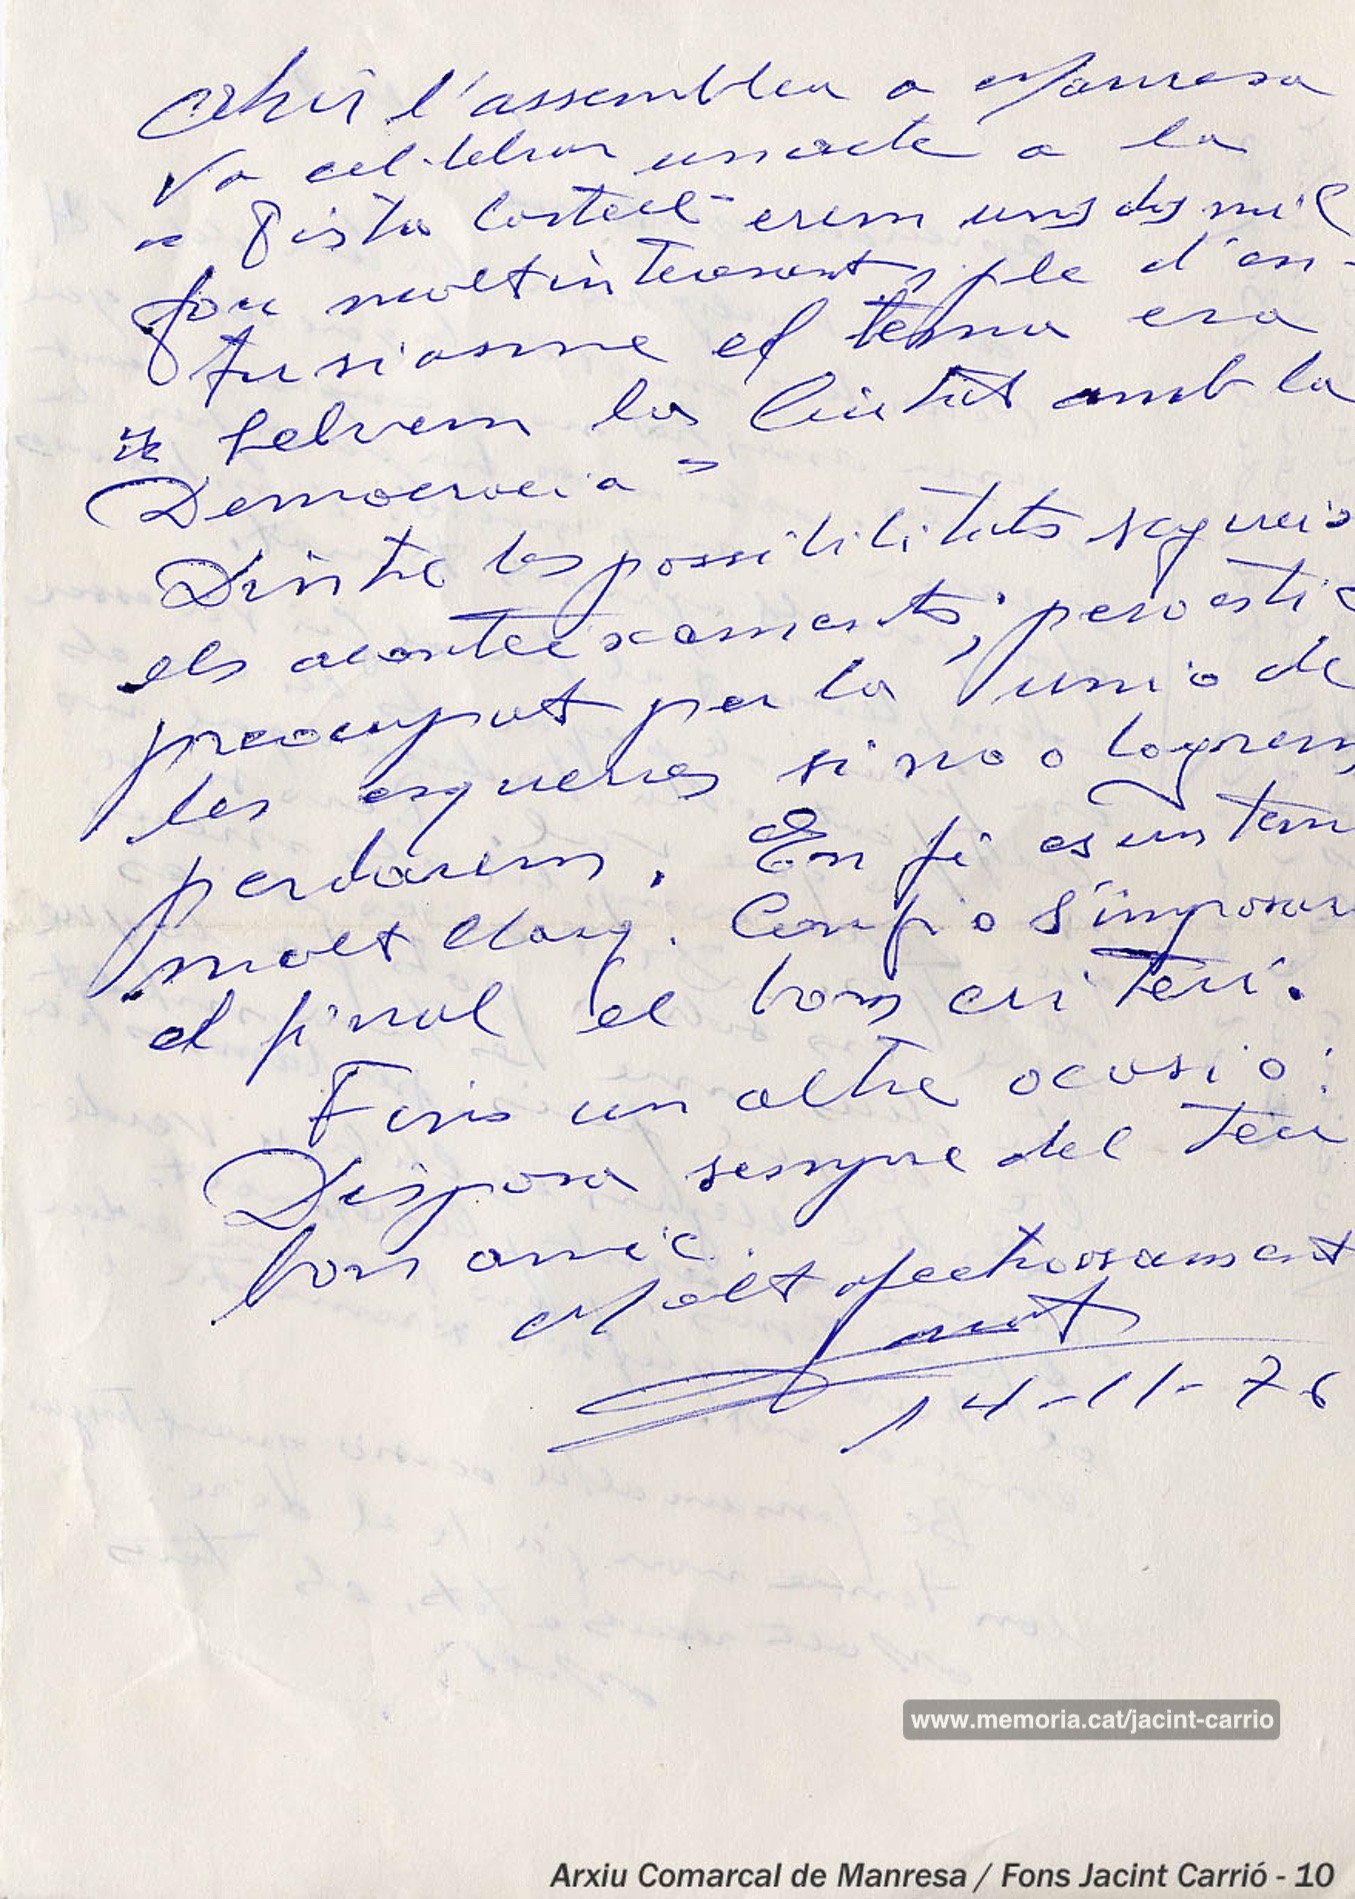 Ahir l'assemblea a Manresa
va cel·lebrar un acte a la
"Pista Castell" erem uns dos mil
fou molt interasant, ple d'en-
tusiasme el tema era
"Selvem la Ciutat amb la
Democracia"
Dintre las possibilitats segueio
els aconteixements, pero estic
preocupat per la unio de
les esqueres si no o logrem
perdarem. En fi es un tem
molt llarg. Confio s'imposar
al final el bon criteri.
Fins un altre ocasio;
Disposa sempre del teu
bon amic.
Molt afectuosament
14-11-76
www.memoria.cat/jacint-carrio
Arxiu Comarcal de Manresa / Fons Jacint Carrió - 10